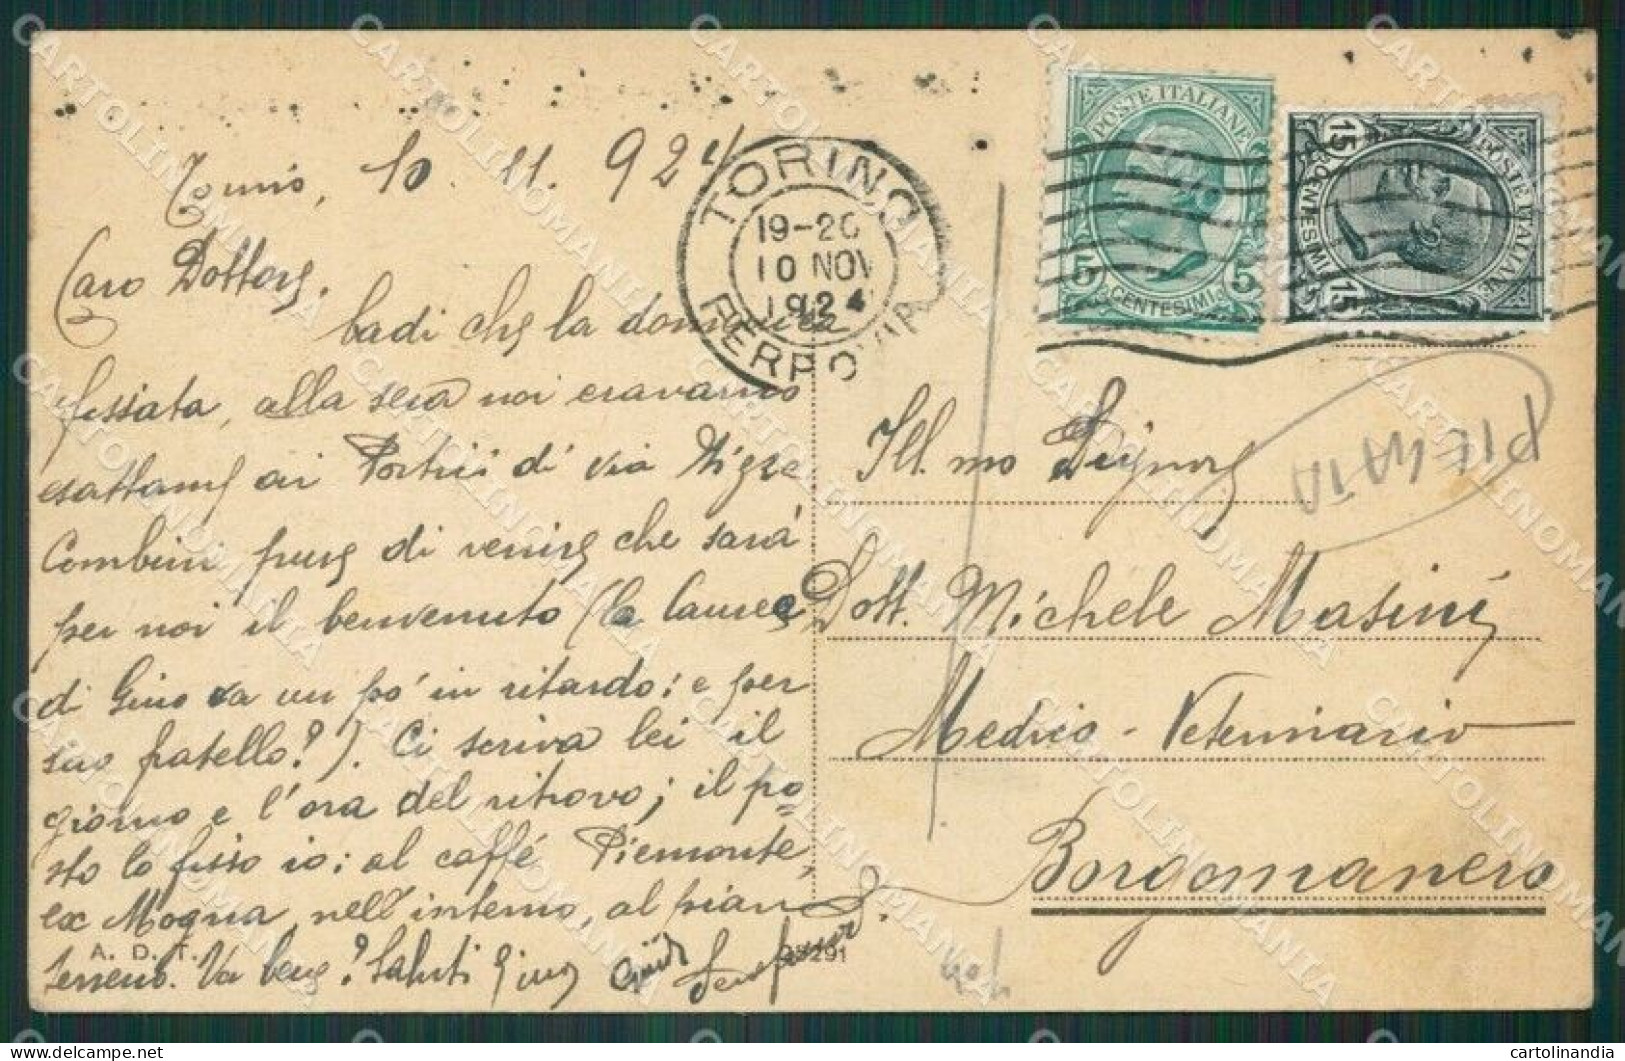 Torino, 10. 11. 924
Caro Dottore,
badi che la domenica
fissata, alla sera noi eravamo
esattame ai Portici di via Nizza
Combini pure di venire che sarà
per noi il benvenuto (la laurea
di Gino va un po' in ritardo: e per
suo fratello?). Ci scriva lei il
giorno e l'ora del ritrovo; il po=
sto lo fisso io: al caffé Piemonte,
ex Mogna, nell'interno, al piano
terreno. Va bene? Saluti Gino Guido
A. D. T.
291
TORINO
19-20
10 NOV
1924
FERROVIA
POSTE ITALIANE
5 5
CENTESIMI
POSTE ITALIANE
15 15
CENTESIMI
Ill.mo Signore
PIEGATA
Dott. Michele Masini
Medico-Veterinario
Borgomanero
CARTOLINOMANIA
cartolinandia